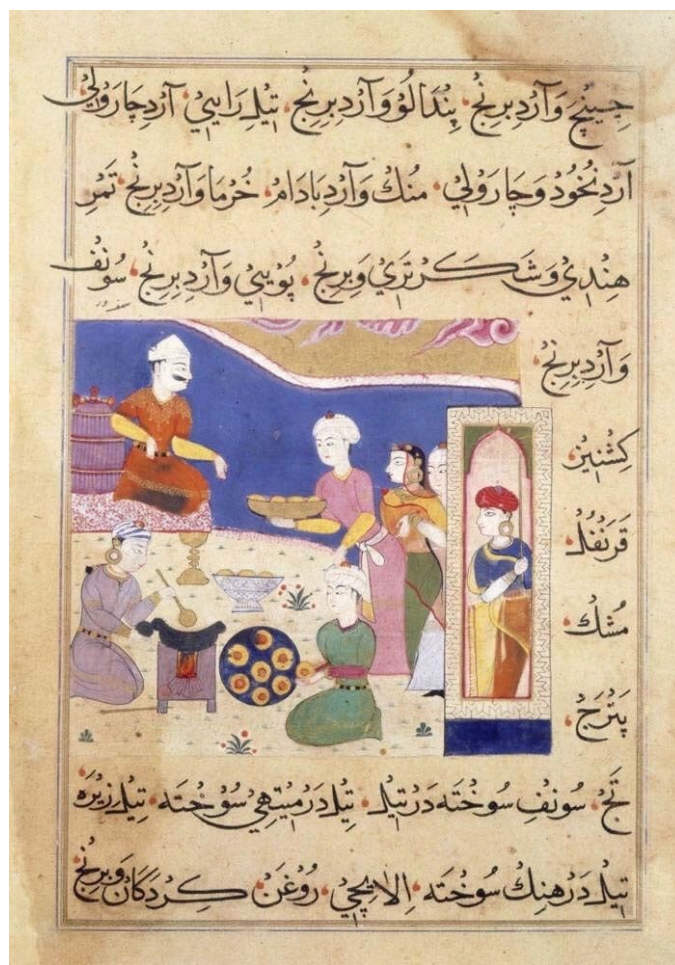 چینچ وَآرْدِ بِرِنْج، پِنْدَالُوْ وَآرْدِ بِرِنْج، تیلِ رَاییِ، آرْدِ چَارَوْلیِ
آرْدِ نُخُوْد وَچَارَوْلیِ، مُنْك وَآرْدِ بَادَامْ، خُرْمَا وَآرْدِ بِرِنْج، تَمْرِ
هِنْدِيْ وَشَكَرْ تَرِيْ وَبِرِنْج، پُوْییِ وَآرْدِ بِرِنْج، سُوْنْف
وَآرْدِ بِرِنْج،
كِشْنِیْز،
قَرَنْفُلْ،
مُشْك،
پَتْرَجْ،
تَجْ، سُوْنْفِ سُوْخْتَه دَرْ تیلْ، تیلْ دَرْ میْتْهيْ سُوْخْتَه، تیلِ زِیْرَه
تیلْ دَرْ هِنْك سُوْخْتَه، اِلَایِچيْ، رُوْغَنْ كِرْدَكَانْ وَبِرِنْج